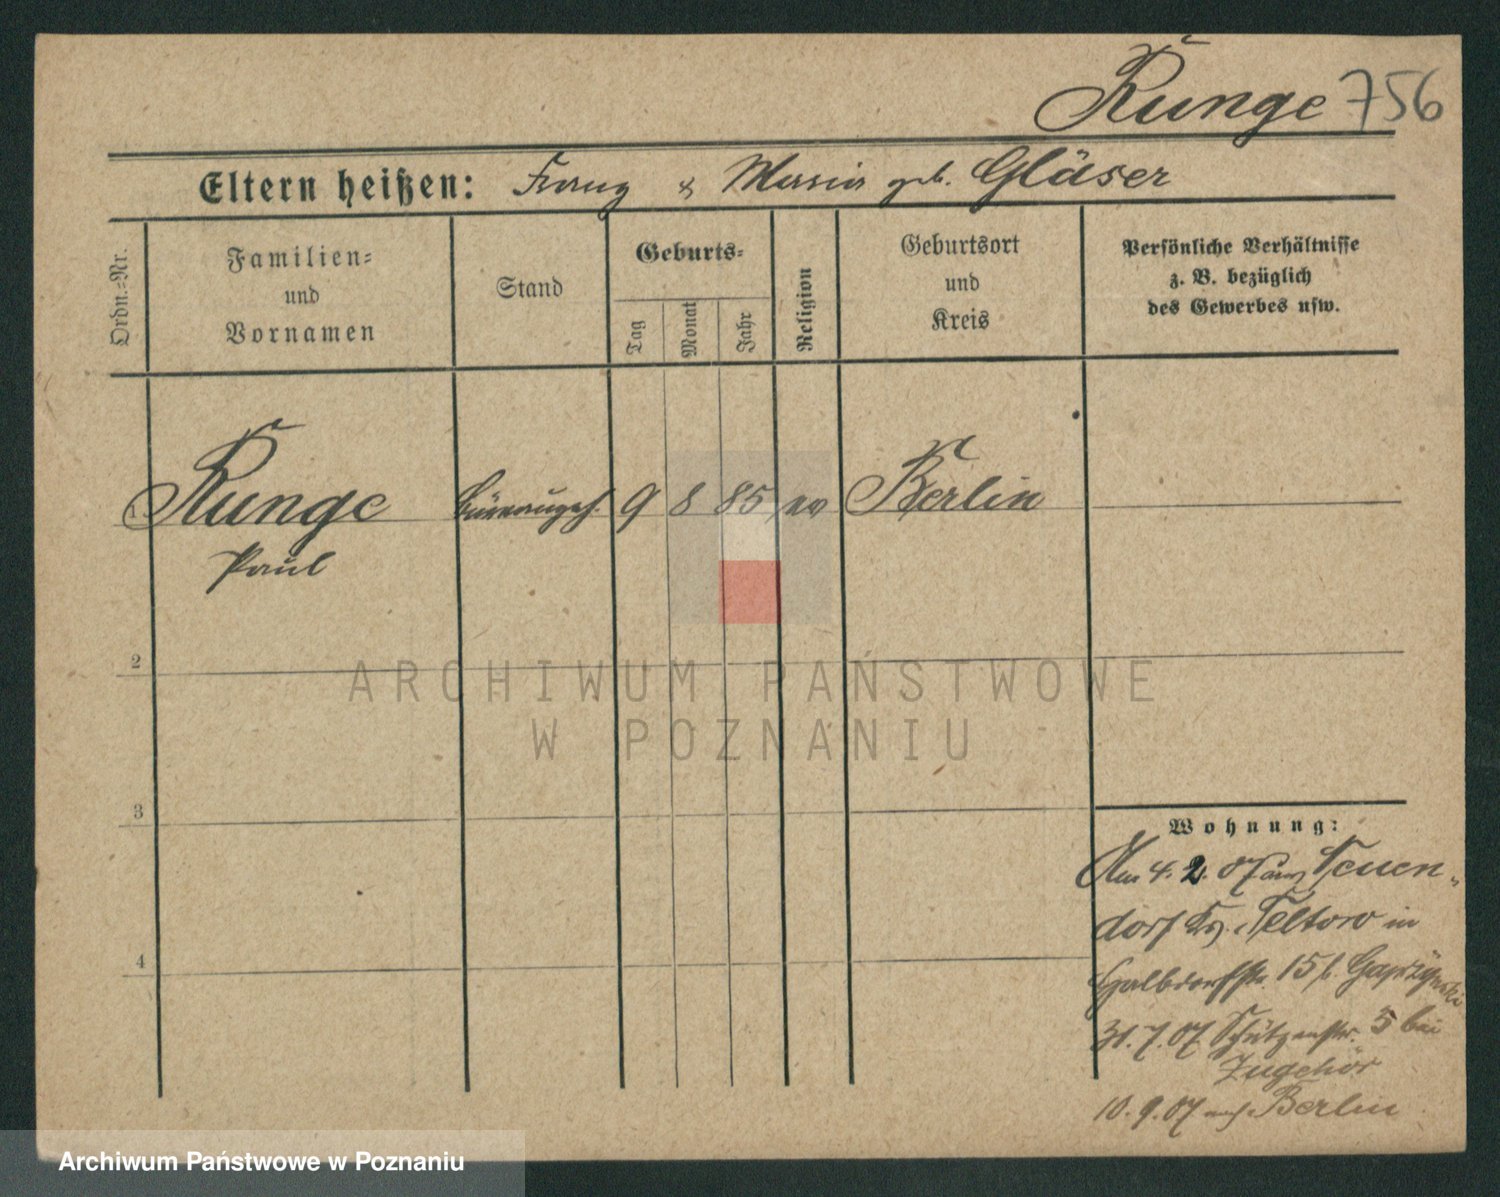 Runge 756
Eltern heißen: Franz & Maria geb. Gläser
Ordn.-Nr.
Familien-
und
Vornamen
Stand
Geburts-
Tag
Monat
Jahr
Religion
Geburtsort
und
Kreis
Persönliche Verhältnisse
z. B. bezüglich
des Gewerbes usw.
Runge 9 8 85 ev Berlin
Paul
2
ARCHIWUM PAŃSTWOWE
W POZNANIU
3
Wohnung:
Am 4. 2. 07 aus
dorf Krs. Teltow in
15 b.
4
31.7.07 Schützenstr. 5 bei
Zugehör
10.9.07 nach Berlin
Archiwum Państwowe w Poznaniu